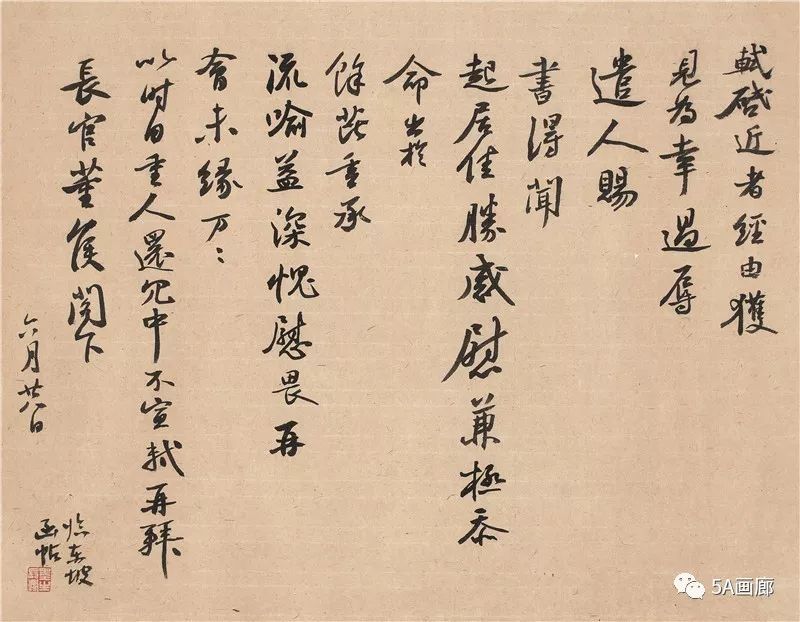 軾啓近者經由獲
見為幸過辱
遣人賜
書得聞
起居佳勝感慰兼極忝
命出於
餘芘重承
流喻益深愧慰畏再
會未緣万〻
以时自重人還冗中不宣軾再拜
長官董侯閣下
六月廿八日
臨東坡
函帖
5A画廊